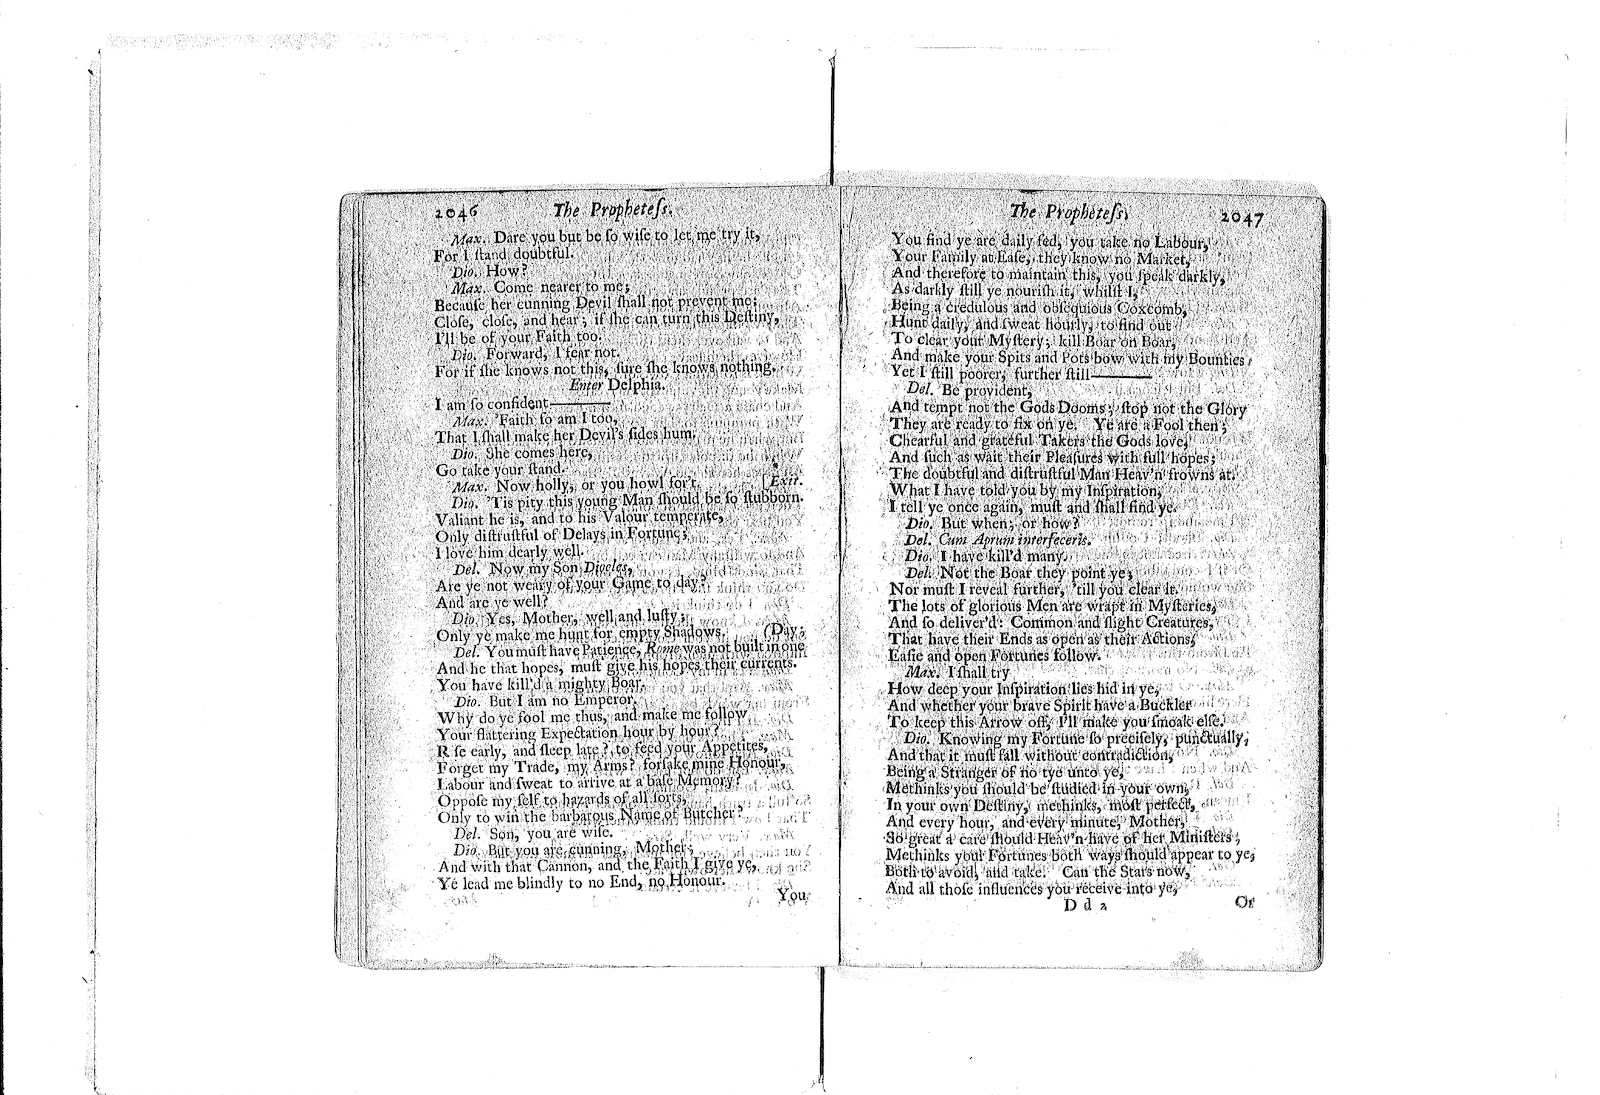 2046 The Propheteſs.
Max. Dare you but be ſo wiſe to let me try it,
For I ſtand doubtful.
Dio. How?
Max. Come nearer to me;
Becauſe her cunning Devil ſhall not prevent me;
Cloſe, cloſe, and hear; if ſhe can turn this Deſtiny,
I'll be of your Faith too.
Dio. Forward, I fear not.
For if ſhe knows not this, ſure ſhe knows nothing.
Enter Delphia.
I am ſo confident———
Max. 'Faith ſo am I too,
That I ſhall make her Devil's ſides hum.
Dio. She comes here,
Go take your ſtand.
Max. Now holly, or you howl for't. [Exit.
Dio. 'Tis pity this young Man ſhould be ſo ſtubborn.
Valiant he is, and to his Valour temperate,
Only diſtruſtful of Delays in Fortune;
I love him dearly well.
Del. Now my Son Diocles,
Are ye not weary of your Game to day?
And are ye well?
Dio. Yes, Mother, well and luſty;
Only ye make me hunt for empty Shadows. (Day;
Del. You muſt have Patience, Rome was not built in one
And he that hopes, muſt give his hopes their currents.
You have kill'd a mighty Boar.
Dio. But I am no Emperor.
Why do ye fool me thus, and make me follow
Your flattering Expectation hour by hour?
R ſe early, and ſleep late? to feed your Appetites,
Forget my Trade, my Arms? forſake mine Honour,
Labour and ſweat to arrive at a baſe Memory?
Oppoſe my ſelf to hazards of all ſorts,
Only to win the barbarous Name of Butcher?
Del. Son, you are wiſe.
Dio. But you are cunning, Mother;
And with that Cannon, and the Faith I give ye,
Ye lead me blindly to no End, no Honour.
You
The Propheteſs. 2047
You find ye are daily fed, you take no Labour,
Your Family at Eaſe, they know no Market,
And therefore to maintain this, you ſpeak darkly,
As darkly ſtill ye nouriſh it, whilſt I,
Being a credulous and obſequious Coxcomb,
Hunt daily, and ſweat hourly, to find out
To clear your Myſtery; kill Boar on Boar,
And make your Spits and Pots bow with my Bounties;
Yet I ſtill poorer, further ſtill———
Del. Be provident,
And tempt not the Gods Dooms; ſtop not the Glory
They are ready to fix on ye. Ye are a Fool then;
Chearful and grateful Takers the Gods love,
And ſuch as wait their Pleaſures with full hopes;
The doubtful and diſtruſtful Man Heav'n frowns at.
What I have told you by my Inſpiration,
I tell ye once again, muſt and ſhall find ye.
Dio. But when, or how?
Del. Cum Aprum interfeceris.
Dio. I have kill'd many.
Del. Not the Boar they point ye;
Nor muſt I reveal further, 'till you clear it.
The lots of glorious Men are wrapt in Myſteries,
And ſo deliver'd: Common and ſlight Creatures,
That have their Ends as open as their Actions,
Eaſie and open Fortunes follow.
Max. I ſhall try
How deep your Inſpiration lies hid in ye,
And whether your brave Spirit have a Buckler
To keep this Arrow off, I'll make you ſmoak elſe.
Dio. Knowing my Fortune ſo preciſely, punctually,
And that it muſt fall without contradiction,
Being a Stranger of no tye unto ye,
Methinks you ſhould be ſtudied in your own,
In your own Deſtiny, methinks, moſt perfect,
And every hour, and every minute, Mother,
So great a care ſhould Heav'n have of her Miniſters;
Methinks your Fortunes both ways ſhould appear to ye,
Both to avoid, and take. Can the Stars now,
And all thoſe influences you receive into ye,
D d 2 Or